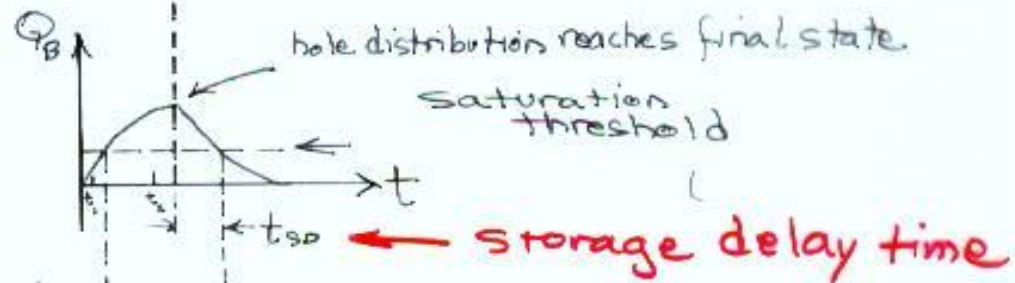 Q_B
hole distribution reaches final state
saturation
threshold
t
t_SD
storage delay time